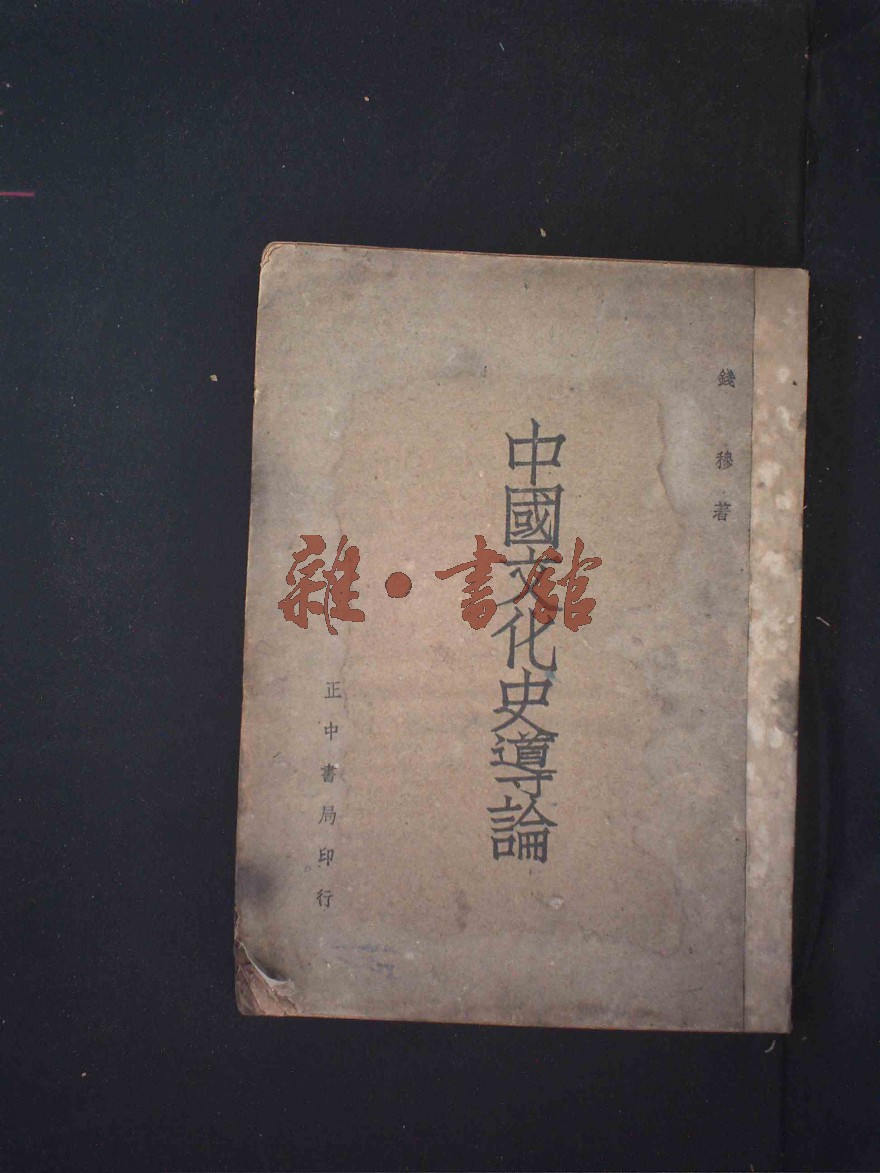 錢穆著
中國文化史導論
正中書局印行
雜·書館